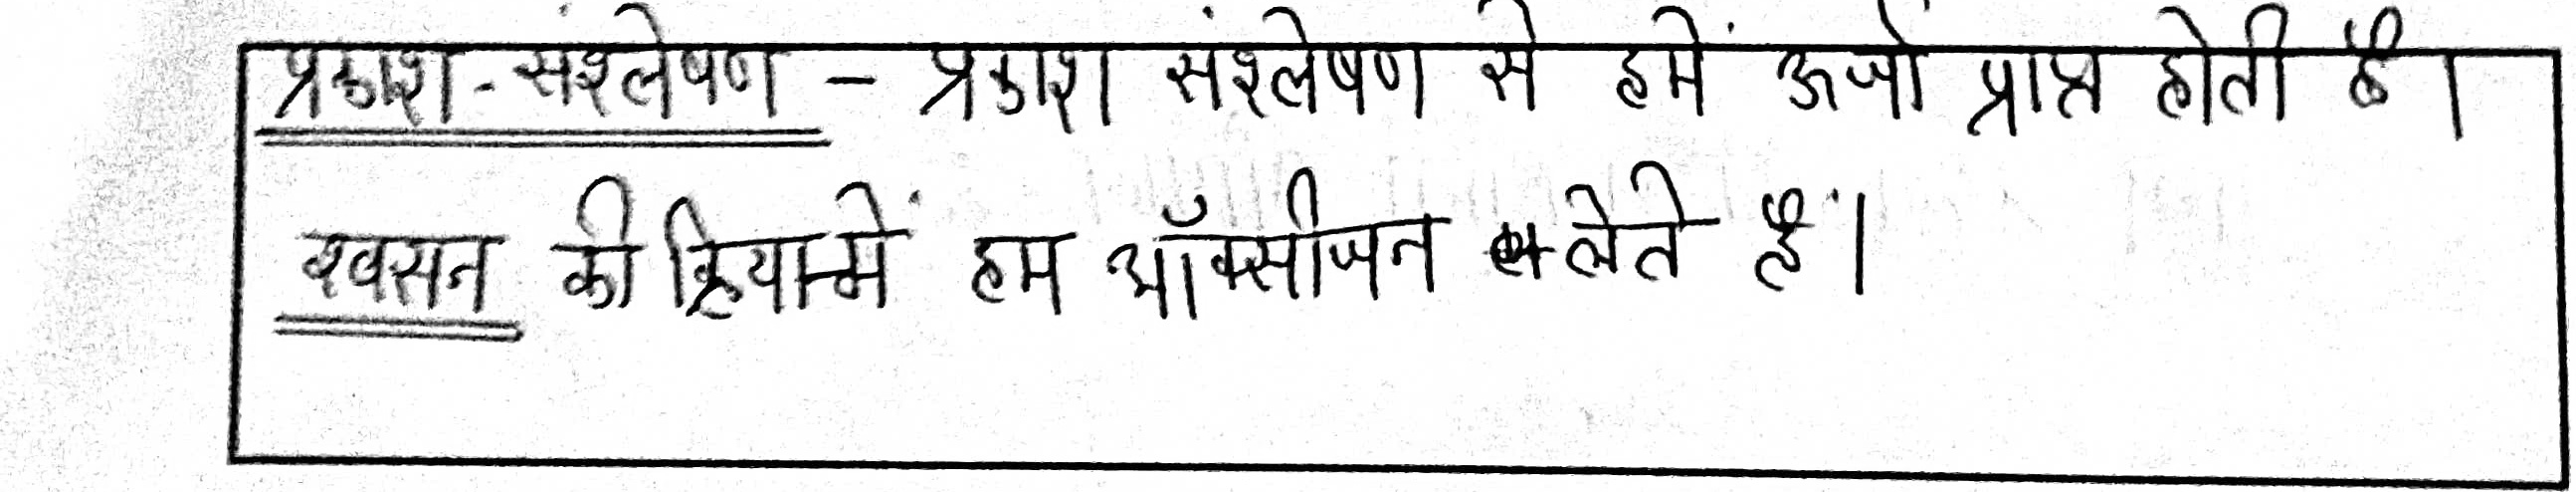 प्रकाश-संश्लेषण - प्रकाश संश्लेषण से हमें ऊर्जा प्राप्त होती है।
श्वसन की क्रिया में हम ऑक्सीजन लेते हैं।